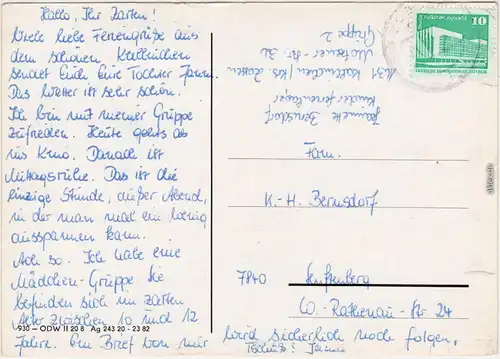 Hallo, Ihr Zarten!
Viele liebe Feriengrüße aus
dem schönen Kallinchen
sendet Euch Eure Tochter
Das Wetter ist sehr schön.
Ich bin mit meiner Gruppe
zufrieden. Heute gehts ab
ins Kino. Danach ist
Mittagsruhe. Das ist die
einzige Stunde, außer Abend,
in der man mal ein wenig
ausspannen kann.
Ach so. Ich habe eine
Mädchen-Gruppe Sie
befinden sich im zarten
Alter zwischen 10 und 12
Jahre. Ein Brief von mir
wird sicherlich noch folgen.
Tschüß:
930 - ODW II 20 8 Ag 243 20 - 23 82
Bernsdorf
Kinderferienlager
1631 Kallinchen / Krs. Zossen
Motzener Str. 32
Gruppe 2
10
Fam.
K.-H. Bernsdorf
7840 Senftenberg
W.-Rathenau-Str. 24